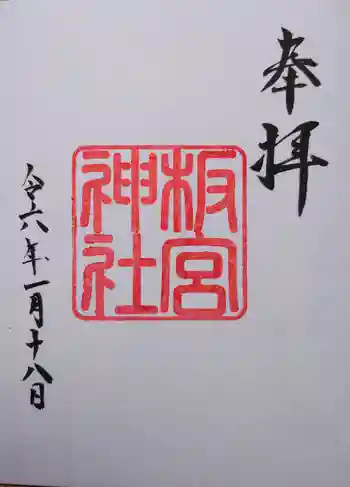 奉拝
板宮
神社
令六年一月十八日